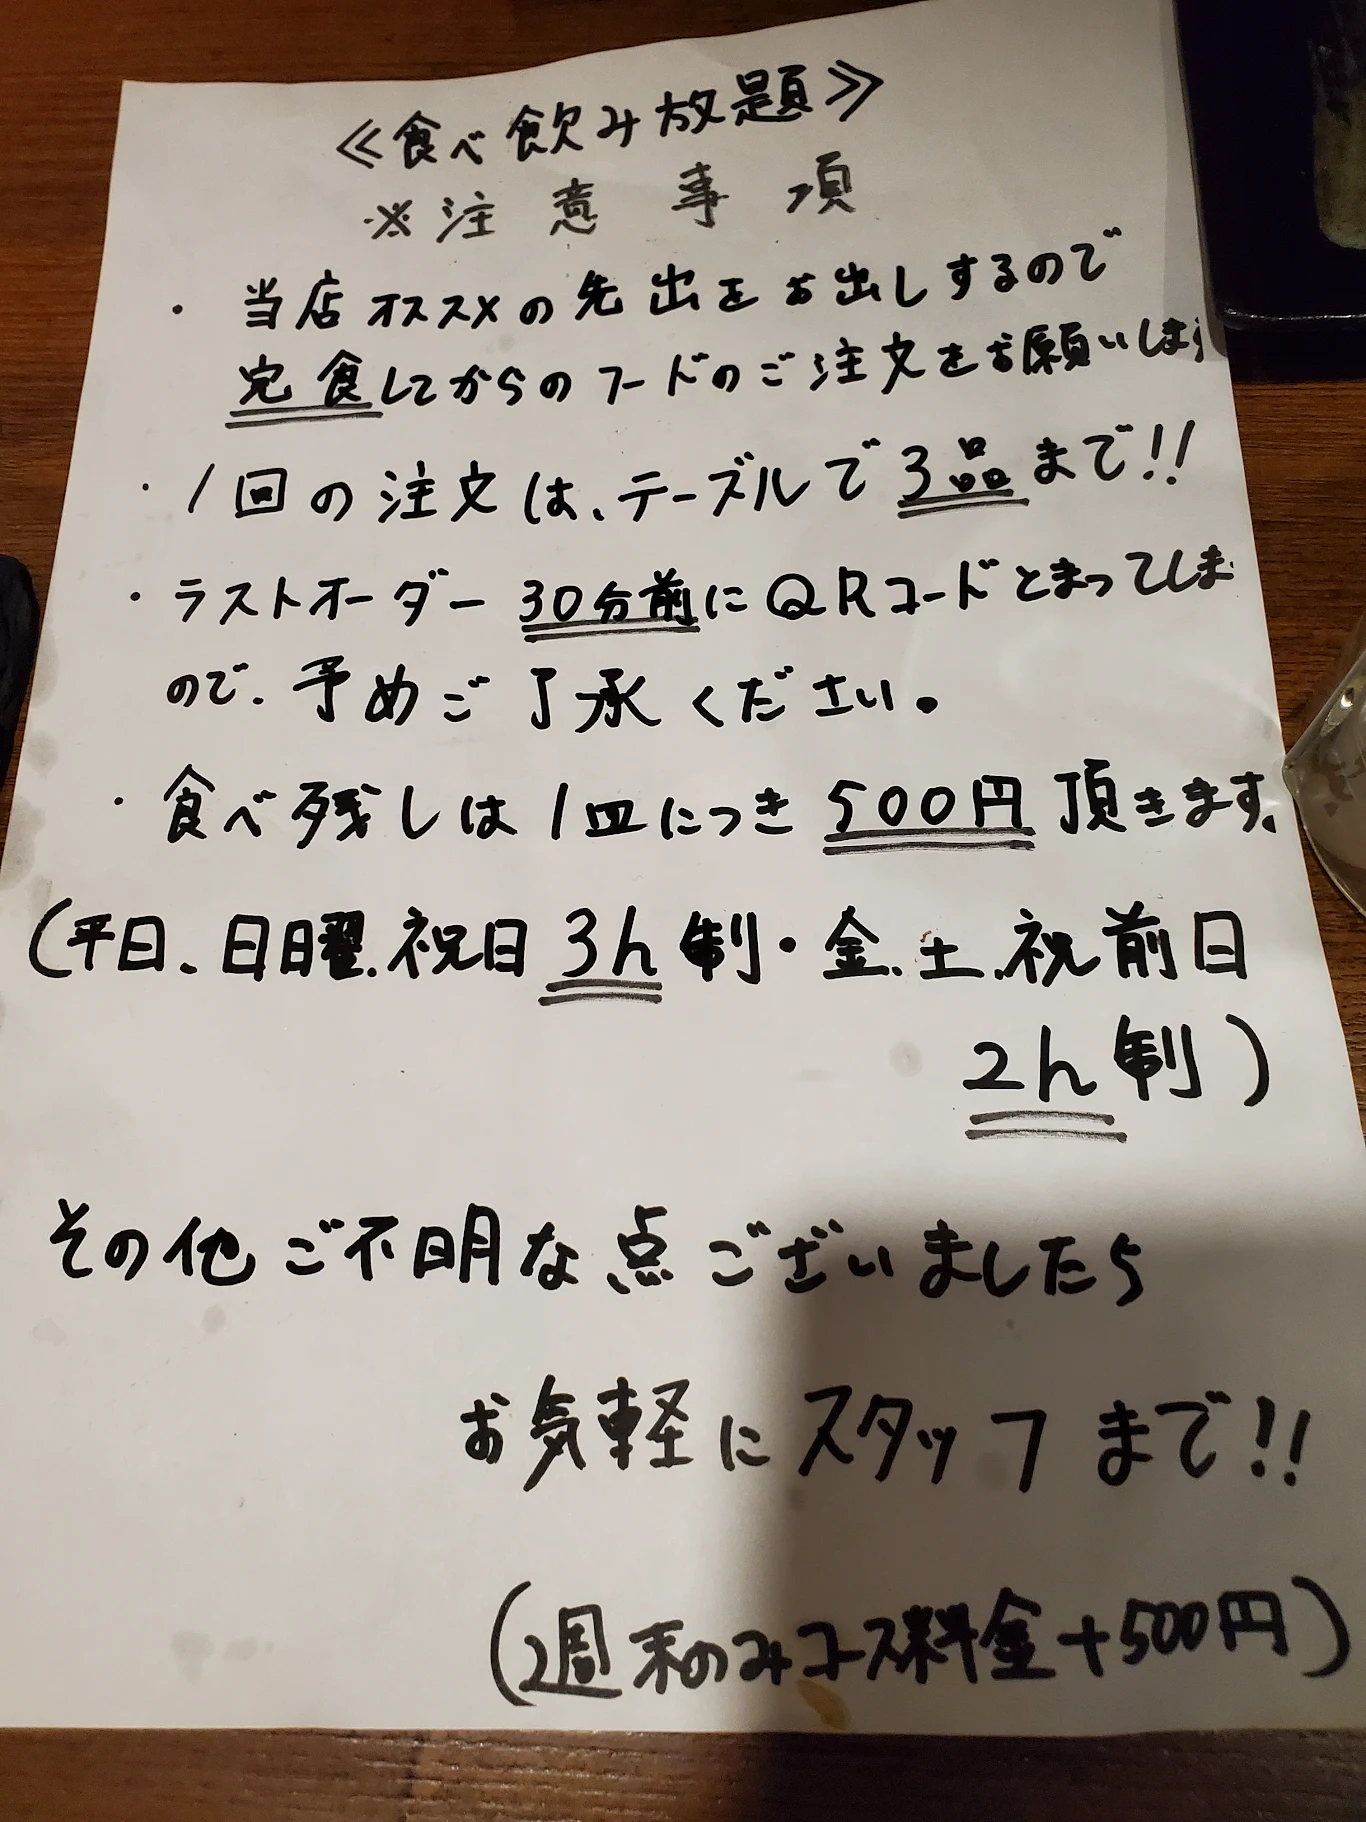 ≪食べ飲み放題≫
※注意事項
・当店オススメの先出をお出しするので
完食してからのフードのご注文をお願いします
・1回の注文は、テーブルで3品まで!!
・ラストオーダー30分前にQRコードとまってしま
ので、予めご了承ください。
・食べ残しは1皿につき500円頂きます。
(平日、日曜、祝日3h制・金、土、祝前日
2h制)
その他ご不明な点ございましたら
お気軽にスタッフまで!!
(週末のみコース料金+500円)